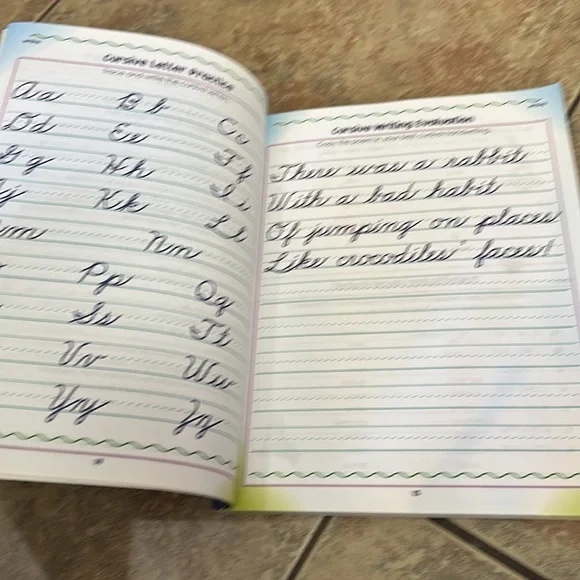 Cursive Letter Practice
Aa Bb Cc
Dd Ee Ff
Gg Hh Ii
Kk Ll
Nn
Pp Qq
Ss Tt
Vv Ww
Yy Zz
Cursive Writing Evaluation
There was a rabbit
With a bad habit
Of jumping on places
Like crocodiles' faces!